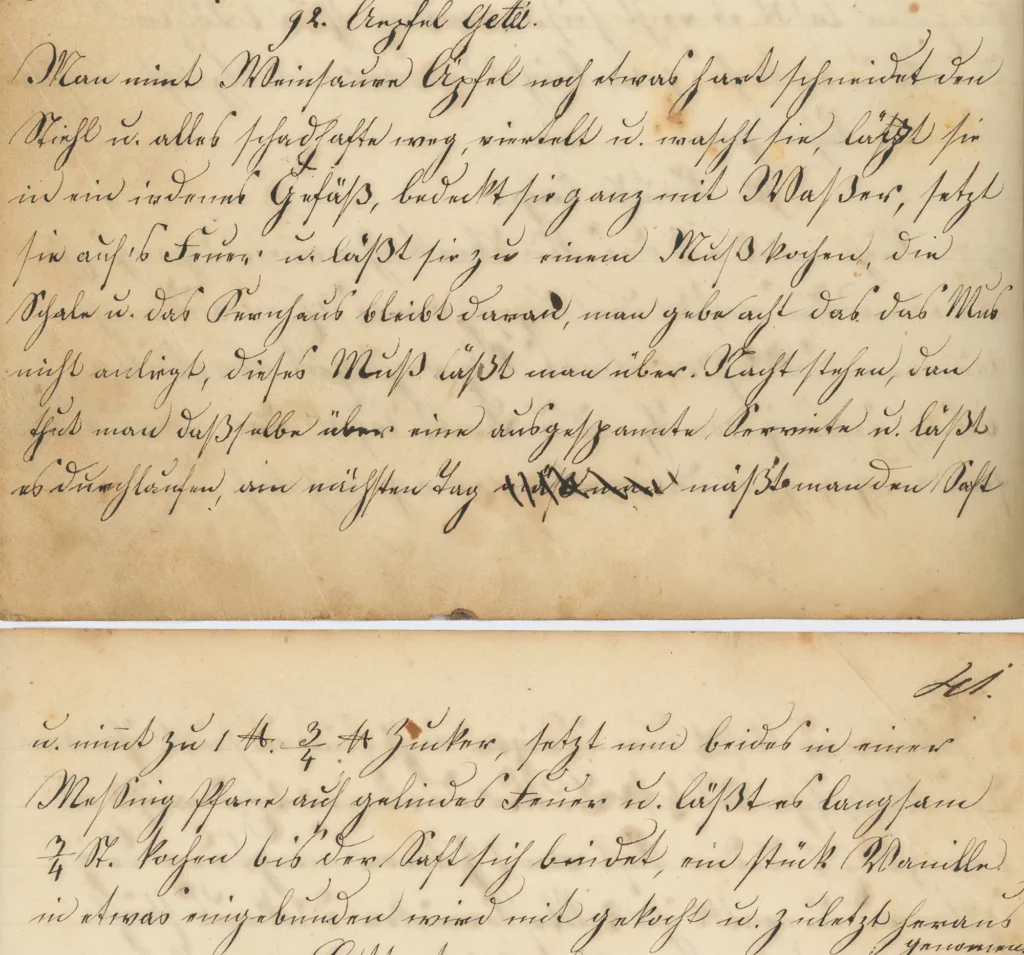 92. Aepfel Gelé.
Man nimt Weinsaure Äpfel noch etwas hart schneidet den
Stiehl u. alles schadhafte weg, viertelt u. wascht sie, läßt sie
in ein irdenes Gefäß, bedeckt sie ganz mit Waßer, setzt
sie auf's Feuer u. läßt sie zu einem Muß kochen, die
Schale u. das Kernhaus bleibt daran, man gebe acht das das Mus
nicht anliegt, dieses Muß läßt man über Nacht stehen, dan
thut man daßselbe über eine ausgespannte Serviete u. läßt
es durchlaufen, am nächsten Tag mäßt man den Saft
41.
u. nimt zu 1 ℔. 3/4 ℔ Zucker, setzt nun beides in einer
Meßing Pfane auf gelindes Feuer u. läßt es langsam
3/4 St. kochen bis der Saft sich bindet, ein stück Vanille
in etwas eingebunden wird mit gekocht u. zuletzt heraus
genomen